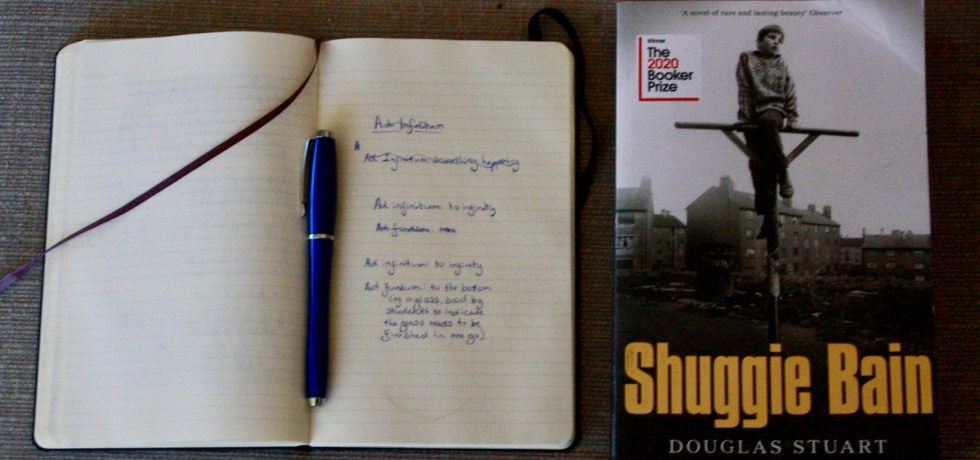 Ad Infinitum
Ad Infinitum: something happening
Ad infinitum: to infinity
Ad fundum:
Ad infinitum: to infinity
Ad fundum: to the bottom
(of a glass, said by
students to indicate
the glass needs to be
finished in one go)
'A novel of rare and lasting beauty' Observer
Winner
The
2020
Booker
Prize
Shuggie Bain
DOUGLAS STUART